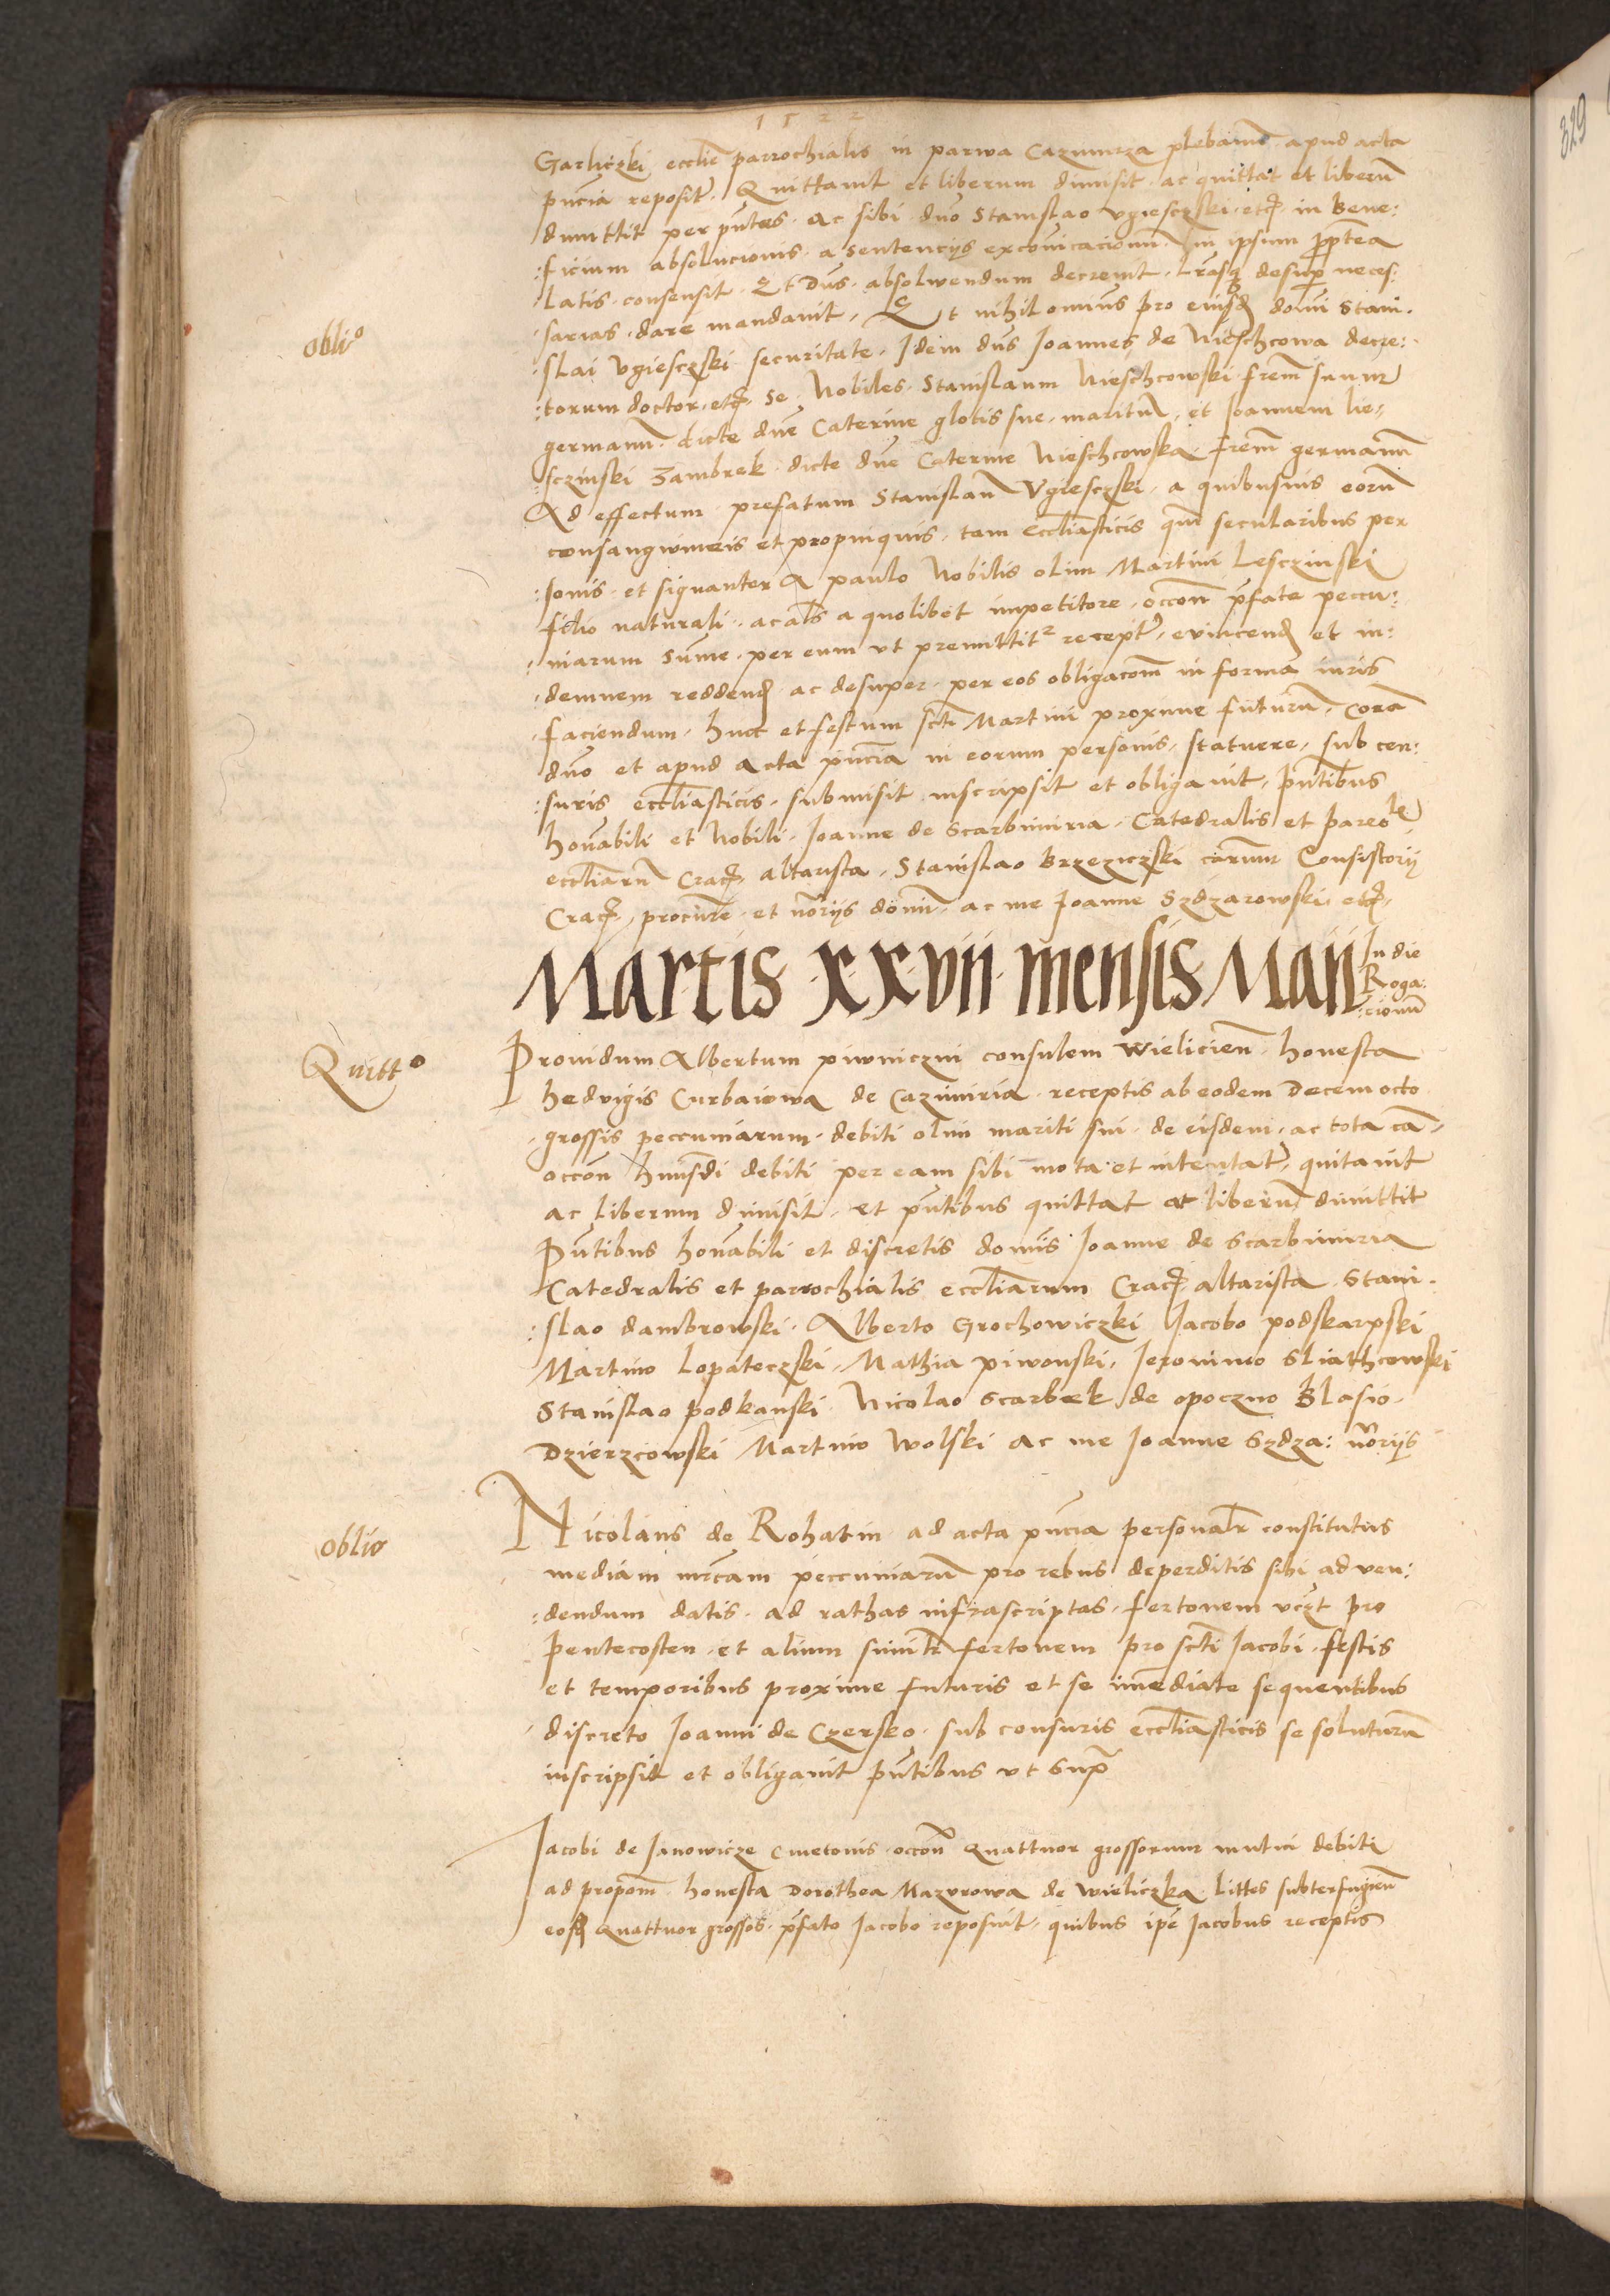 1522
Garliczki ecclie parrochialis in parwa Cazimirza plebanum apud acta
pncia reposit. Quittavit et liberum dimisit ac quittat et liberũ
dimittit per pñtes. Ac sibi dno Stanislao Ugiesczski etc. in Bene:
:ficium absolucionis a sentencijs excoĩcacionum in ipsum pptea
:latis consensit. Et Dñs absolwendum decrevit lrasq desup neces:
:sarias dare mandavit. Et nihilominus pro eiusd domini Stani:
:slai Ugiesczski securitate Idem dñs Joannes de Nieschcowa decre:
:torum doctor etc. se Nobiles Stanislaum Nieschcowski frem suum
germanũ dicte dñe Caterine glotis sue maritũ, et Joannem lie:
:sczinski Zambrek dicte dñe Caterine Nieschcowska frem germanũ
Ad effectum prefatum Stanislaũ Ugiesczski a quibusvis eorũ
consangwineis et propinquis tam eccliasticis qm secularibus per
:sonis et signanter A paulo Nobilis olim Martini Lesczinski
filio naturali ac als a quolibet impetitore occon pfate peccu:
:niarum sum̃e per eum ut premittit recept evincend et in:
:demnem reddend ac desuper per eos obligacom in forma iuris
faciendum hinc et festum scti Martini proxime futurũ Corã
dño et apud Acta pñcia in eorum personis statuere sub cen:
:suris eccliasticis submisit inscripsit et obligavit pñtibus
honabili et Nobili Joanne de Scarbimiria Catedralis et paroch
eccliarũ Crac altarista Stanislao Brzeziczski carum Consistorij
Crac procure et norijs domini ac me Joanne Szdzarowski etc.
Oblio
Martis xxvii mensis Maii
In die
Roga:
:cionũ
Quitto
Providum Albertum piwniczni consulem Wielicien honesta
hedvigis Curbaiowa de Cazimiria receptis ab eodem Decem octo
grossis peccuniarum debiti olim mariti sui de eisdem ac tota cã
occon huiusdi debiti per eam sibi mota et intentat quitavit
ac liberum dimisit et pntibus quittat et liberũ dimittit
Pntibus honabili et discretis domis Joanne de Scarbimiria
Catedralis et parrochialis eccliarum Crac altarista Stani:
:slao dambrowski Alberto Grochowiczki Jacobo podskarpski
Martino Lopateczski Mathia piwonski Jeronimo Sliathcowski
Stanislao podkanski Nicolao Scarbek de opoczno Blasio
Dzierzcowski Martino Wolski ac me Joanne Szdza: norijs
Oblio
Nicolaus de Rohatin ad acta pncia personalr constitutus
mediam mrcam peccuniarũ pro rebus deperditis sibi ad ven:
:dendum datis ad rathas infrascriptas fertonem vczt pro
Pentecosten et alium similr fertonem pro scti Jacobi festis
et temporibus proxime futuris et se im̃ediate sequentibus
discreto Joanni de Czersko sub censuris eccliasticis se soluturũ
inscripsit et obligavit pntibus ut Supra
Jacobi de Janowicze Cmetonis occon Quattuor grossorum mutui debiti
ad propom honesta Dorothea Mazurowa de Wieliczka littes subterfugien
eosd Quattuor grossos pfato Jacobo reposuit quibus ipe Jacobus receptis
329